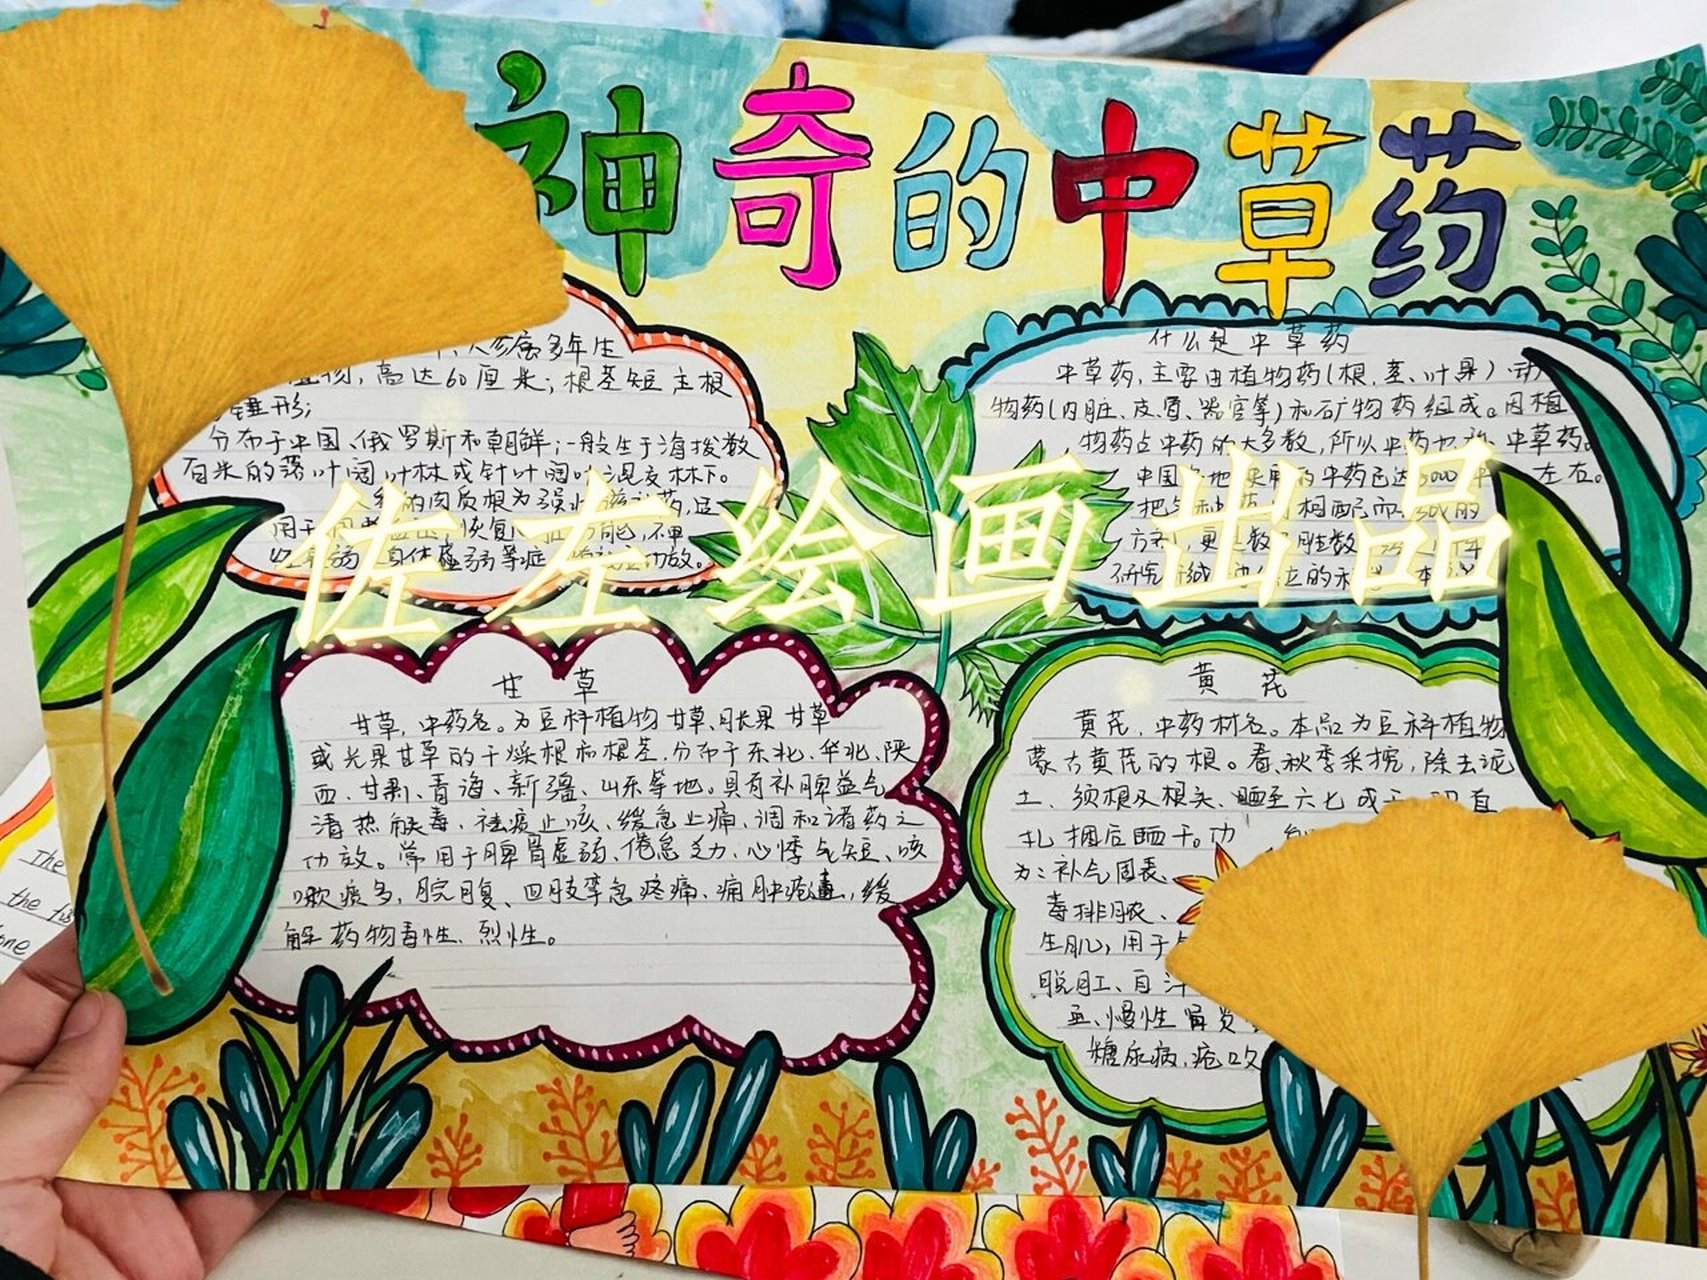 神奇的中草药
人参属多年生
植物，高达60厘米；根茎短主根
锤形；
分布于中国、俄罗斯和朝鲜；一般生于海拨数
百米的落叶阔叶林或针叶阔叶混交林下。
人参的肉质根为强
用于
身体虚弱等症
功效。
什么是中草药
中草药，主要由植物药(根、茎、叶果)
物药(内脏、皮、骨、器官等)和矿物药组成。因植
物药占中药的大多数，所以中药也称中草药。
中国各地使用的中药已达5000种左右。
把各种药相配而成的
方剂，更是数不胜数
研究
佐左绘画出品
甘草
甘草，中药名。为豆科植物甘草、胀果甘草
或光果甘草的干燥根和根茎，分布于东北、华北、陕
西、甘肃、青海、新疆、山东等地。具有补脾益气
清热解毒、祛痰止咳、缓急止痛、调和诸药之
功效。常用于脾胃虚弱、倦怠乏力、心悸气短、咳
嗽痰多，脘腹、四肢挛急疼痛、痈肿疮毒，缓
解药物毒性、烈性。
黄芪
黄芪，中药材名。本品为豆科植物
蒙古黄芪的根。春、秋季采挖，除去泥
土、须根及根头、晒至六七成干，
扎捆后晒干。功
为：补气固表、
毒排脓、
生肌，用于
脱肛、自汗
慢性肾炎
糖尿病，疮口
The
the